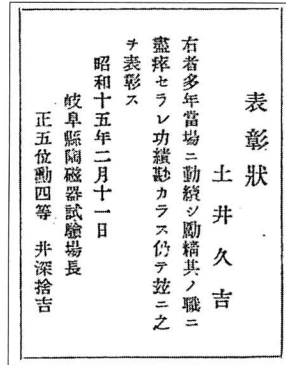 表彰狀
土井久吉
右者多年當場ニ勤續シ勵精其ノ職ニ
盡瘁セラレ功績尠カラス仍テ玆ニ之
ヲ表彰ス
昭和十五年二月十一日
岐阜縣陶磁器試驗場長
正五位勳四等 井深捨吉